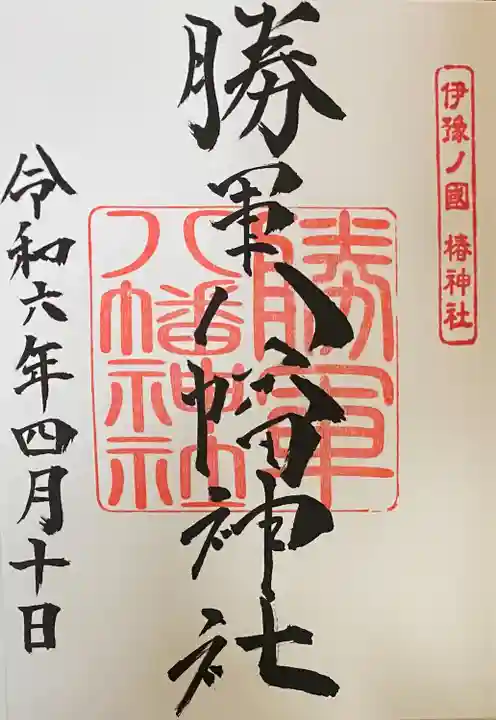 伊豫ノ國 椿神社
勝軍八幡神社
勝軍
八幡神社
令和六年四月十日